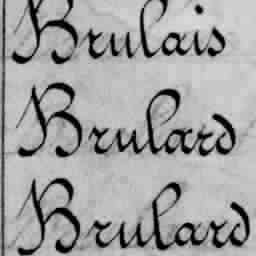 Brulais
Brulard
Brulard